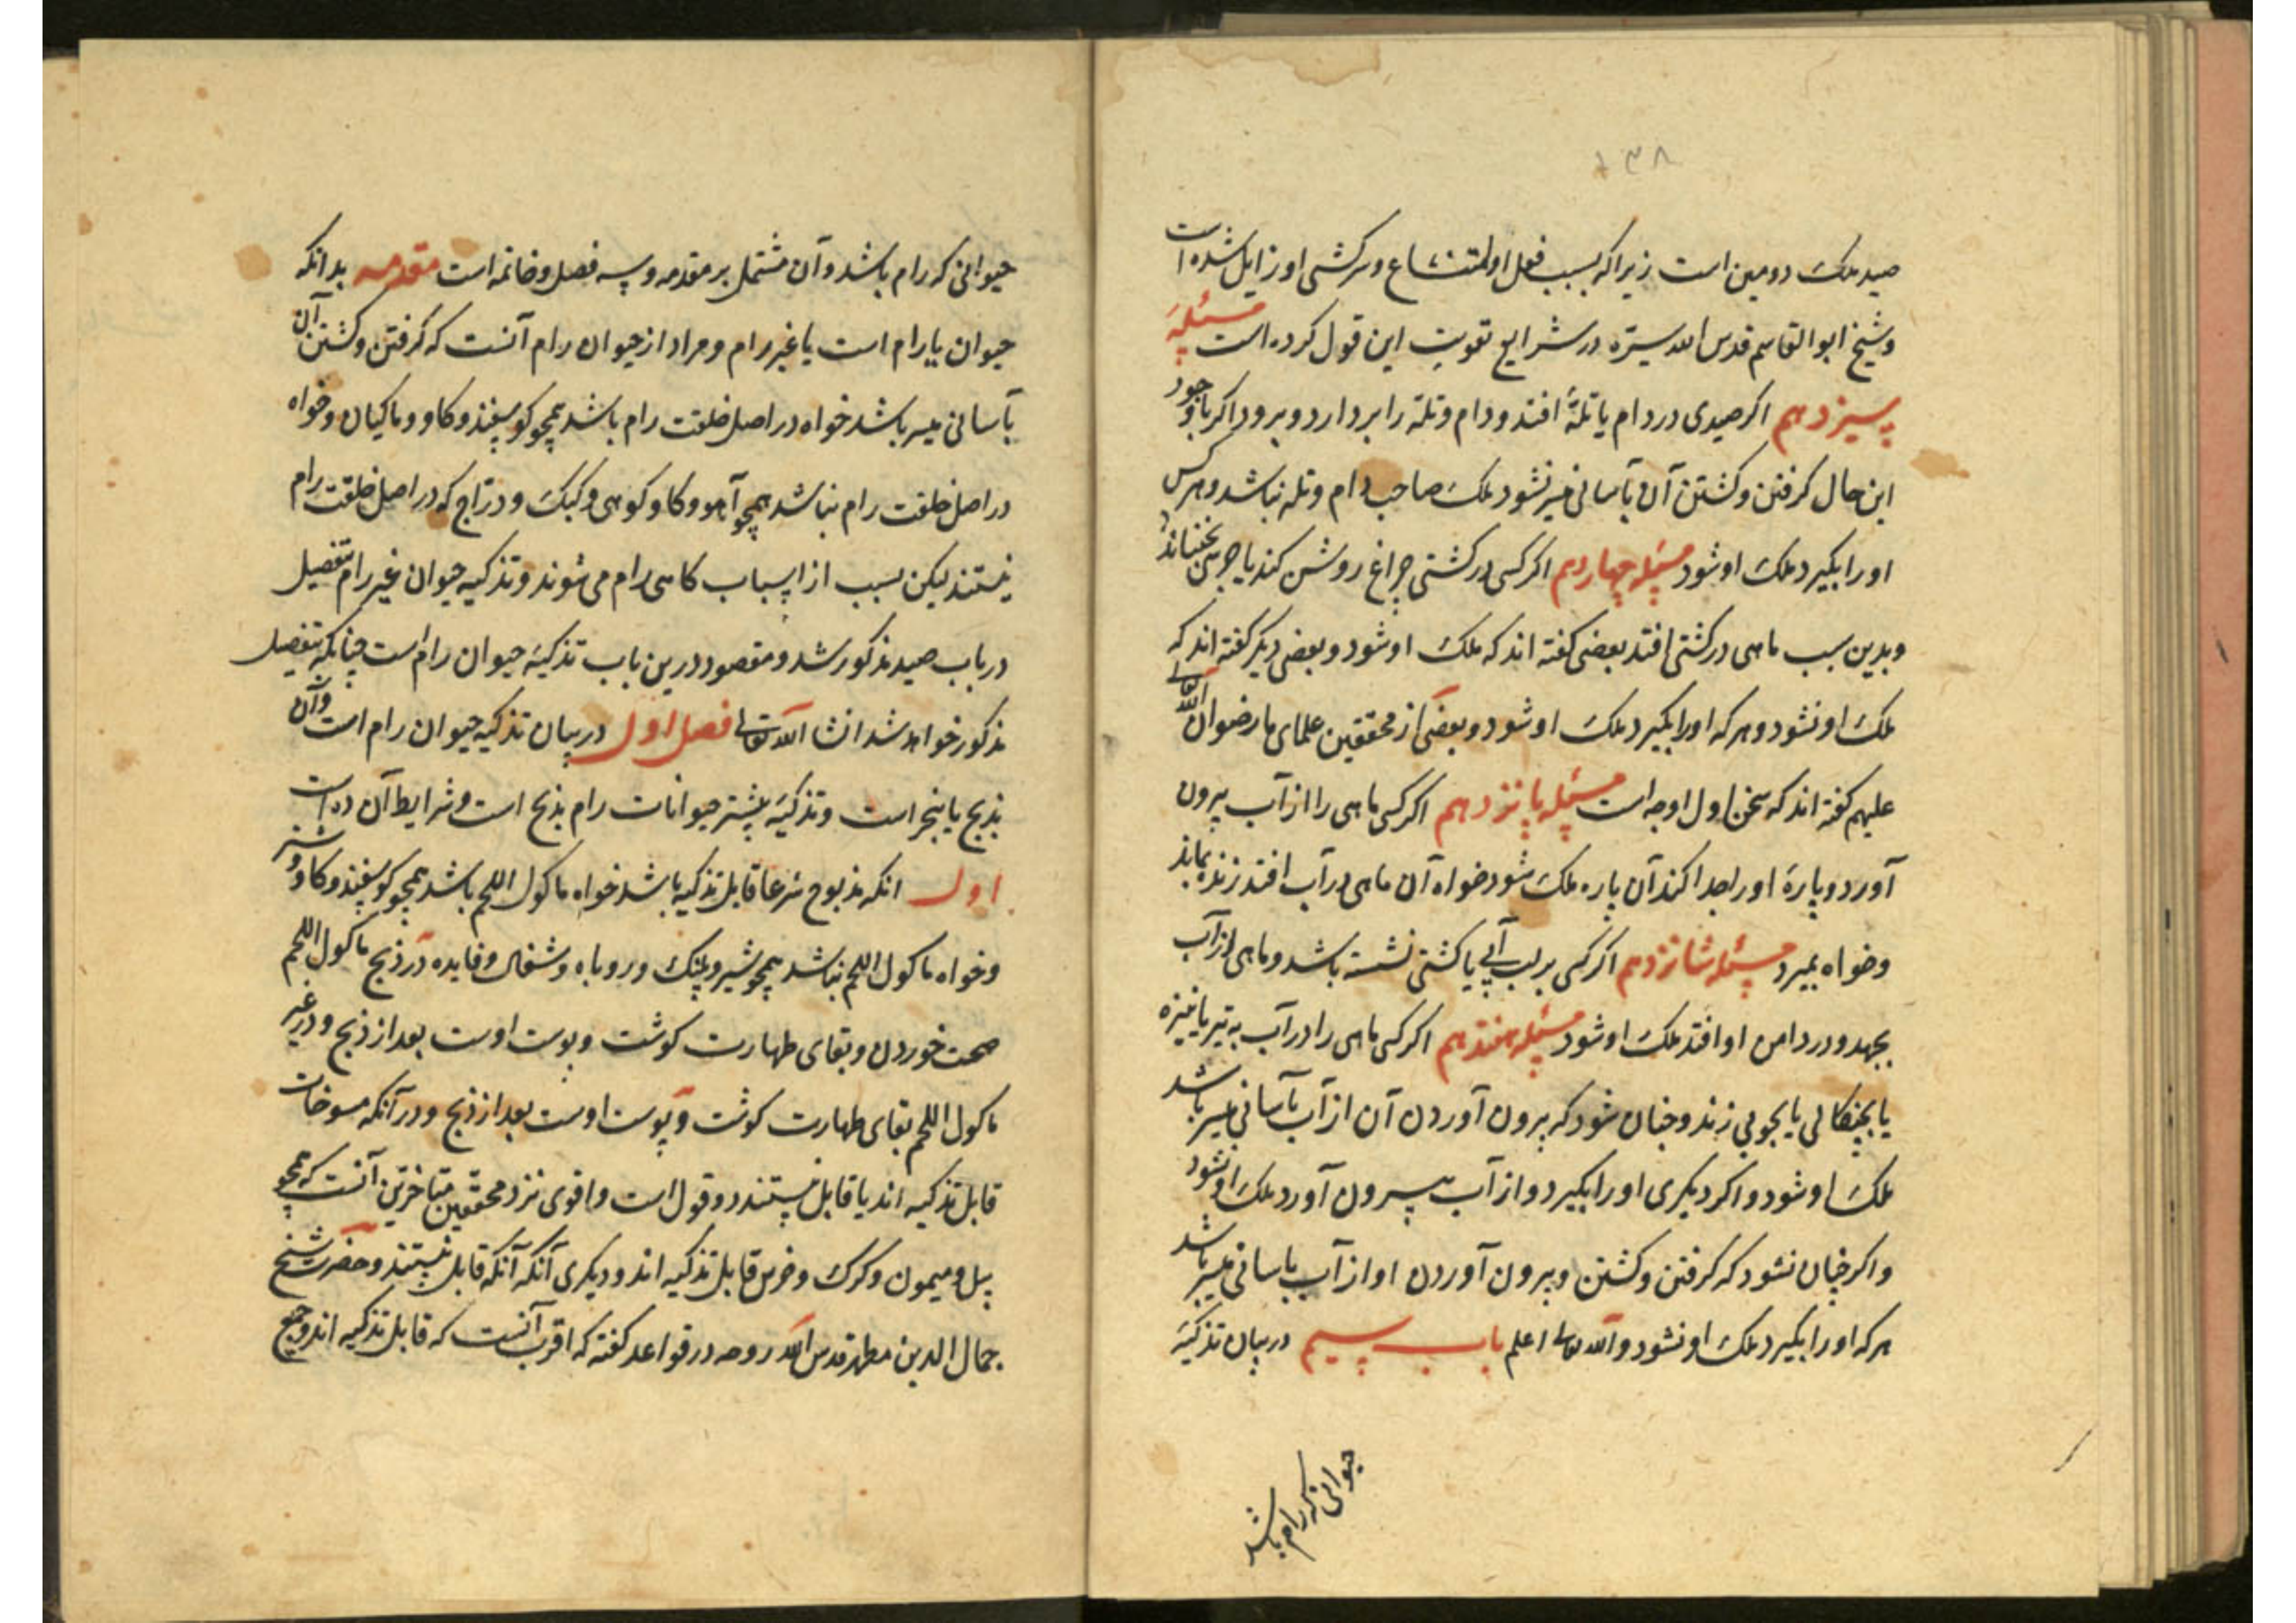 ۱۳۸
صید ملک دومین است زیرا که بسبب فعل او امتناع و سرکشی او زایل شده است
و شیخ ابو القاسم قدس الله سره در شرایع تقویت این قول کرده است مسئله
سیزدهم اکر صیدی در دام یا تلهٔ افتد و دام و تله را بردارد و برود اکر با وجود
این حال کرفتن و کشتن آن بآسانی میسر نشود ملک صاحب دام و تله نباشد و هر کس
او را بکیرد ملک او شود مسئله چهاردهم اکر کسی در کشتی چراغ روشن کند یا جرس بجنباند
و بدین سبب ماهی در کشتی افتد بعضی کفته اند که ملک او شود و بعضی دیکر کفته اند که
ملک او نشود و هر که او را بکیرد ملک او شود و بعضی از محققین علمای ما رضوان الله
علیهم کفته اند که سخن اول اوجه است مسئله پانزدهم اکر کسی ماهی را از آب بیرون
آورد و پارهٔ او را جدا کند آن پاره ملک شود خواه آن ماهی در آب افتد زنده بماند
و خواه بمیرد مسئله شانزدهم اکر کسی بر لب آبی یا کشتی نشسته باشد و ماهی از آب
بجهد و در دامن او افتد ملک او شود مسئله هفتدهم اکر کسی ماهی را در آب به تیر یا نیزه
یا بچنکالی یا بچوبی زند و چنان شود که بیرون آوردن آن از آب بآسانی میسر باشد
ملک او شود و اکر دیکری او را بکیرد و از آب بیرون آورد ملک او نشود
و اکر چنان نشود که کرفتن و کشتن و بیرون آوردن او از آب بآسانی میسر باشد
هر که او را بکیرد ملک او نشود و الله تعالی اعلم باب سیم در بیان تذکیهٔ
حیوانی که رام باشد
حیوانی که رام باشد و آن مشتمل بر مقدمه و سه فصل و خاتمه است مقدمه بدانکه
حیوان یا رام است یا غیر رام و مراد از حیوان رام آنست که کرفتن و کشتن آن
بآسانی میسر باشد خواه در اصل خلقت رام باشد همچو کوسفند و کاو و ماکیان و خواه
در اصل خلقت رام نباشد همچو آهو و کاو کوهی و کبک و دراج که در اصل خلقت رام
نیستند لیکن بسبب از اسباب کاهی رام می شوند و تذکیه حیوان غیر رام بتفصیل
در باب صید مذکور شد و مقصود درین باب تذکیهٔ حیوان رام است چنانکه بتفصیل
مذکور خواهد شد انشا الله تعالی فصل اول در بیان تذکیه حیوان رام است و آن
بذبح یا بنحر است و تذکیهٔ بیشتر حیوانات رام بذبح است و شرایط آن ده است
اول انکه مذبوح شرعا قابل تذکیه باشد خواه ماکول اللحم باشد همچو کوسفند و کاو و شتر
و خواه ماکول اللحم نباشد همچو شیر و پلنک و روباه و شغال و فایده در ذبح ماکول اللحم
صحت خوردن و بقای طهارت کوشت و پوست اوست بعد از ذبح و در غیر
ماکول اللحم بقای طهارت کوشت و پوست اوست بعد از ذبح و در آنکه مسوخات
قابل تذکیه اند یا قابل نیستند دو قول است و اقوی نزد محققین متاخرین آنست که همچو
پیل و میمون و کرک و خرس قابل تذکیه اند و دیکری آنکه آنکه قابل نیستند و حضرت شیخ
جمال الدین مطهر قدس الله روحه در قواعد کفته که اقرب آنست که قابل تذکیه اند و جمیع